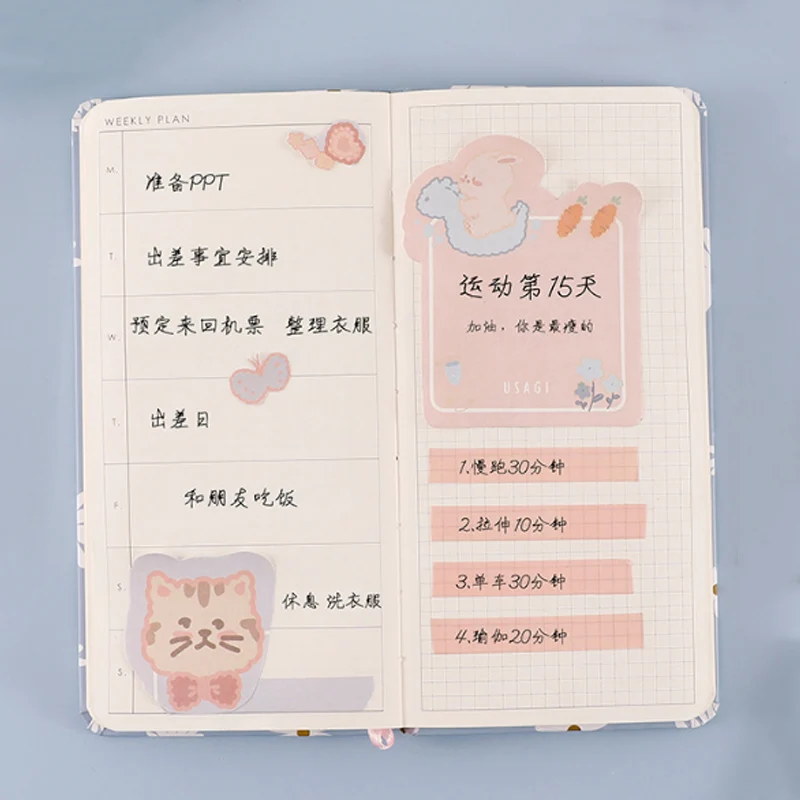 WEEKLY PLAN
M.
准备PPT
T.
出差事宜安排
W.
预定来回机票 整理衣服
T.
出差日
F.
和朋友吃饭
S.
休息 洗衣服
S.
运动第15天
加油，你是最瘦的
USAGI
1.慢跑30分钟
2.拉伸10分钟
3.单车30分钟
4.瑜伽20分钟